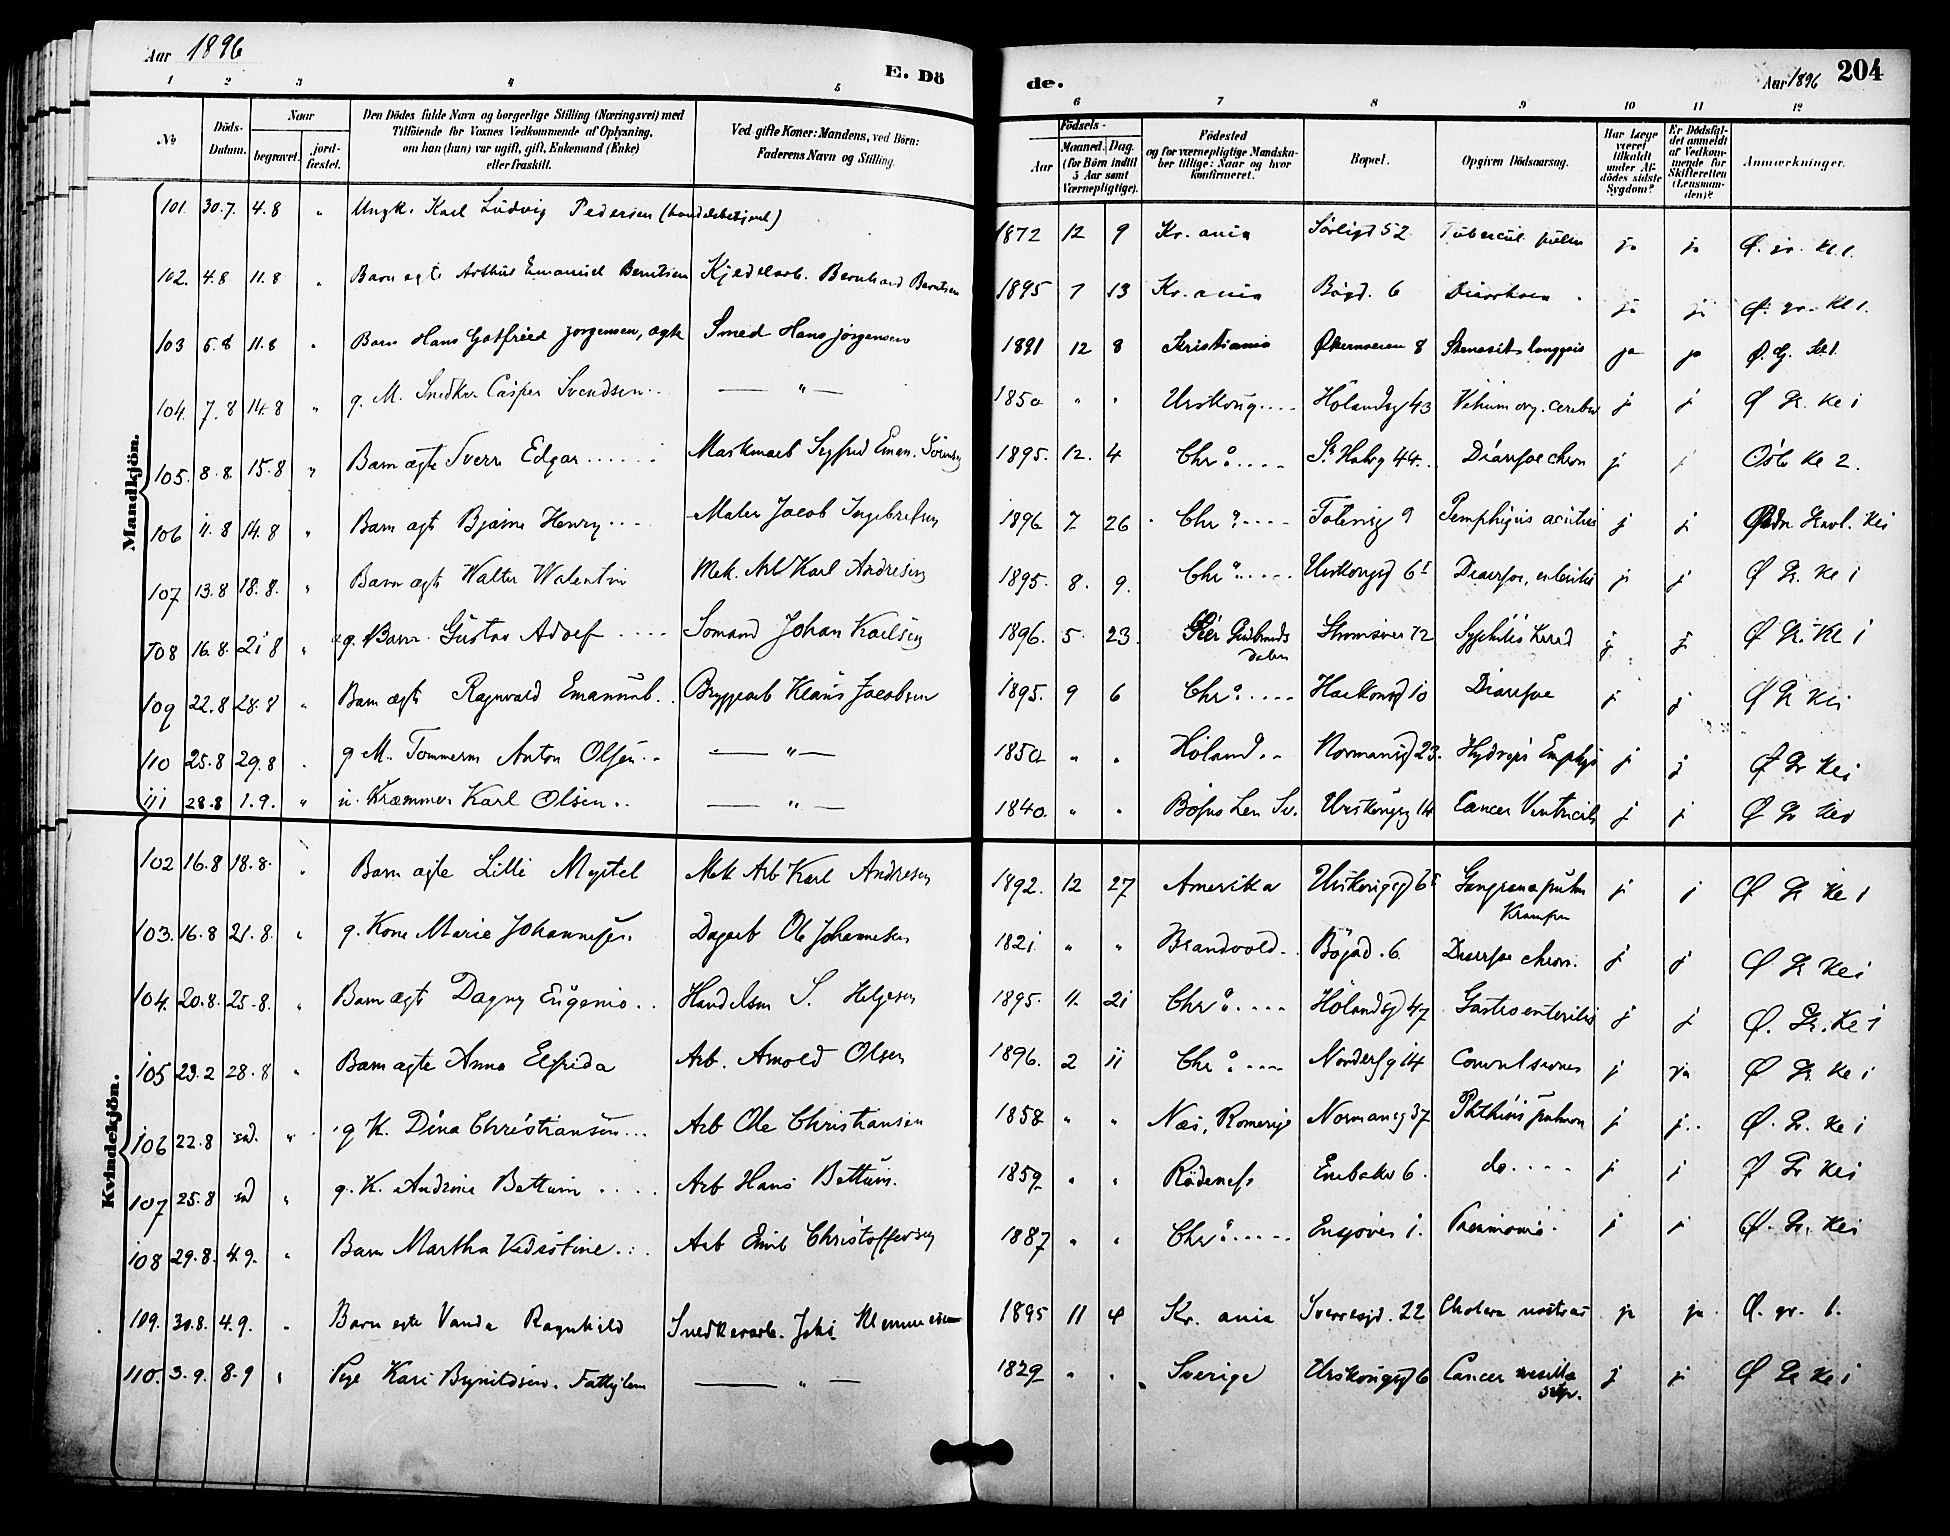 Aar 1896
E. Dö
de.
Aar 1896 204
1 2 3 4 5 6 7 8 9 10 11 12
No
Döds-Datum.
Naar
begravet.
jord-fæstet.
Den Dödes fulde Navn og borgerlige Stilling (Næringsvei) med
Tilföiende for Voxnes Vedkommende af Oplysning,
om han (hun) var ugift, gift, Enkemand (Enke)
eller fraskilt.
Ved gifte Koner: Mandens, ved Börn:
Faderens Navn og Stilling.
Födsels-
Aar
Maaned. Dag.
(for Börn indtil
5 Aar samt
Værnepligtige).
Födested
og for værnepligtige Mandska-
ber tillige: Naar og hvor
Konfirmeret.
Bopæl.
Opgiven Dödsaarsag.
Har Læge
været
tilkaldt
under Af-
dödes sidste
Sygdom?
Er Dödsfal-
det anmeldt
af Vedkom-
mende for
Skifteretten
(Lensman-
den)?
Anmærkninger.
Mandkjön.
101. 30.7. 4.8 " Ungk. Karl Ludvig Pedersen 1872 12 9 Kr. ania Sörligt 52 Tubercul. pulm ja ja Ø. gr. kl 1.
102. 4.8 11.8 " Barn egte Arthur Emanuel Berntsen Kjedelarb. Bernhard Berntsen 1895 7 13 Kr. ania Bögd. 6 Diarrhoea ja ja Ø. gr. Kl 1.
103 5.8 11.8 " Barn Hans Gotfried Jörgensen, ægte Smed Hans Jörgensen 1891 12 8 Kristiania Økernveien 8 ja ja Ø. G. Kl 1.
104. 7.8 14.8 " g. M. Snedker Casper Svendsen — " — 1850 " " Urskoug Hölandsg 43 Vitium org. j j Ø Gr. Kl 1
105. 8.8. 15.8 " Barn ægte Sverre Edgar 1895. 12. 4 Chra St Halvg 44. Diarrhoe chron j j Oslo Kl 2.
106 11.8 14.8 " Barn ægte Bjarne Henry Maler Jacob Ingebretsen 1896 7 26 Chra Toteng 9 Pemphigus acutus j j Kl 1
107 13.8 18.8. " Barn ægte Walter Walentin Mek. Arb Karl Andresen 1895. 8. 9. Chra Urskougsgd 6 Diarrhoe, enteritis j j Ø Gr. Kl 1
108 16.8. 21 8 " æg. Barn Gustav Adolf Sömand Johan Karlsen 1896. 5 23. Gudbrandsdalen Strömsvei 72 Syphilis hered j j Ø Gr. Kl 1
109 22.8 28.8 " Barn ægte Ragnvald Emanuel Bryggearb Klaus Jacobsen 1895. 9 6 Chra Haakonsgd 10 Diarrhoe j j Ø Gr Kl 1
110 25.8 29.8 " g M. Tömmerm Anton Olsen — " — 1850 " " Höland Normansgd 23. j j Ø Gr Kl 1
111 28.8 1.9. " u. Kræmmer Karl Olsen — " — 1840. " " Urskougsg 14 Cancer Ventriculi j j Ø Gr Kl 1
Kvindekjön.
102 16.8 18.8. " Barn ægte Lilli Myrtel Mek Arb Karl Andresen 1892. 12 27 Amerika Urskougsgd 6 Gangræna pulm
Kramper j j Ø Gr Kl 1
103. 16.8 21.8. " g. Kone Marie Johannesen Dagarb Ole Johannesen 1821. " " Brandvold Bögd. 6 Diarrhoe chron. j j Ø Gr Kl 1
104. 20.8. 25.8. " Barn ægte Dagny Eugenie Handelsm S. Helgesen 1895. 11. 21 Chra Hölandsgd 47 Gastroenteritis j j Ø. Gr. Kl 1
105 23.2 28.8 " Barn ægte Anna Elfrida Arb. Arnold Olsen 1896. 2 11 Chra 14 Convulsiones j ja Ø Gr. Kl 1
106 22.8 sd. " g K. Dina Christiansen Arb Ole Christiansen 1858. " " Næs, Romerige Normansg 37 Phthisis pulmon j j. Ø. Gr. Kl 1
107 25.8 sd " g. K. Andrine Bettum Arb Hans Bettum. 1859 " " Rödenæs Enebakv 6. do. j j Ø Gr Kl 1
108 29.8. 4.9. " Barn Martha Kristine Arb Emil Christoffersen 1887 " " Chra Ensjövei 1. Pneumoni j j Ø. Gr. Kl 1
109. 30.8. 4.9. " Barn egte Vanda Ragnhild Snedkerarb. 1895 11 4 Kr. ania Sverresgd. 22 Cholera nostras ja ja. Ø. gr. 1.
110. 3.9. 8.9 " Pige Kari 1829 " " Sverige Urskougsgd 6 Cancer j j Ø Gr Kl 1